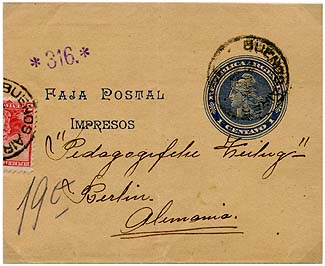 *316.*
BUENOS
REPUBLICA ARGENTINA
1 CENTAVO 1
FAJA POSTAL
IMPRESOS
BUENOS AIR
"Pedagogische Zeitug"
19 cx
Berlin.
Alemania.